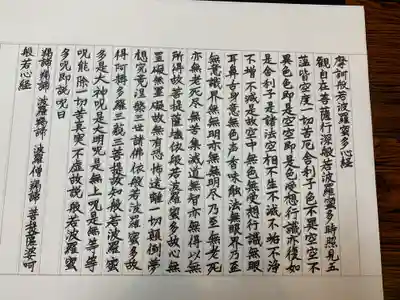 摩訶般若波羅蜜多心経
觀自在菩薩行深般若波羅蜜多時照見五
蘊皆空度一切苦厄舍利子色不異空空不
異色色即是空空即是色受想行識亦復如
是舍利子是諸法空相不生不滅不垢不浄
不増不減是故空中無色無受想行識無眼
耳鼻舌身意無色声香味触法無眼界乃至
無意識界無無明亦無無明尽乃至無老死
亦無老死尽無苦集滅道無智亦無得以無
所得故菩提薩埵依般若波羅蜜多故心無
罣礙無罣礙故無有恐怖遠離一切顛倒夢
想究竟涅槃三世諸佛依般若波羅蜜多故
得阿耨多羅三藐三菩提故知般若波羅蜜
多是大神呪是大明呪是無上呪是無等等
呪能除一切苦真実不虚故説般若波羅蜜
多呪即説呪曰
羯諦羯諦 波羅羯諦 波羅僧羯諦 菩提薩婆訶
般若心経